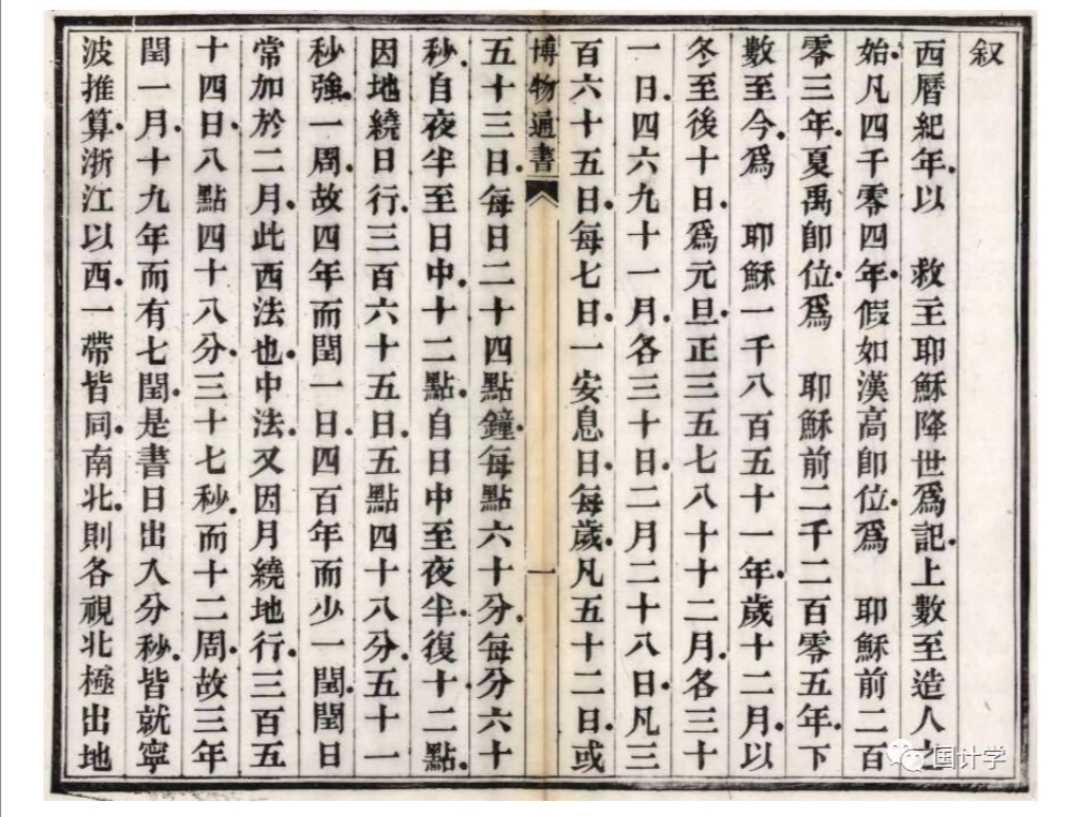 叙
西曆紀年以　救主耶穌降世爲記上數至造人之
始凡四千零四年假如漢高卽位爲　耶穌前二百
零三年夏禹卽位爲　耶穌前二千二百零五年下
數至今爲　耶穌一千八百五十一年歲十二月以
冬至後十日爲元旦正三五七八十十二月各三十
一日四六九十一月各三十日二月二十八日凡三
百六十五日每七日一安息日每歲凡五十二日或
博物通書
一
五十三日每日二十四點鐘每點六十分每分六十
秒自夜半至日中十二點自日中至夜半復十二點
因地繞日行三百六十五日五點四十八分五十一
秒強一周故四年而閏一日四百年而少一閏閏日
常加於二月此西法也中法又因月繞地行三百五
十四日八點四十八分三十七秒而十二周故三年
閏一月十九年而有七閏是書日出入分秒皆就寧
波推算浙江以西一帶皆同南北則各視北極出地
国计学